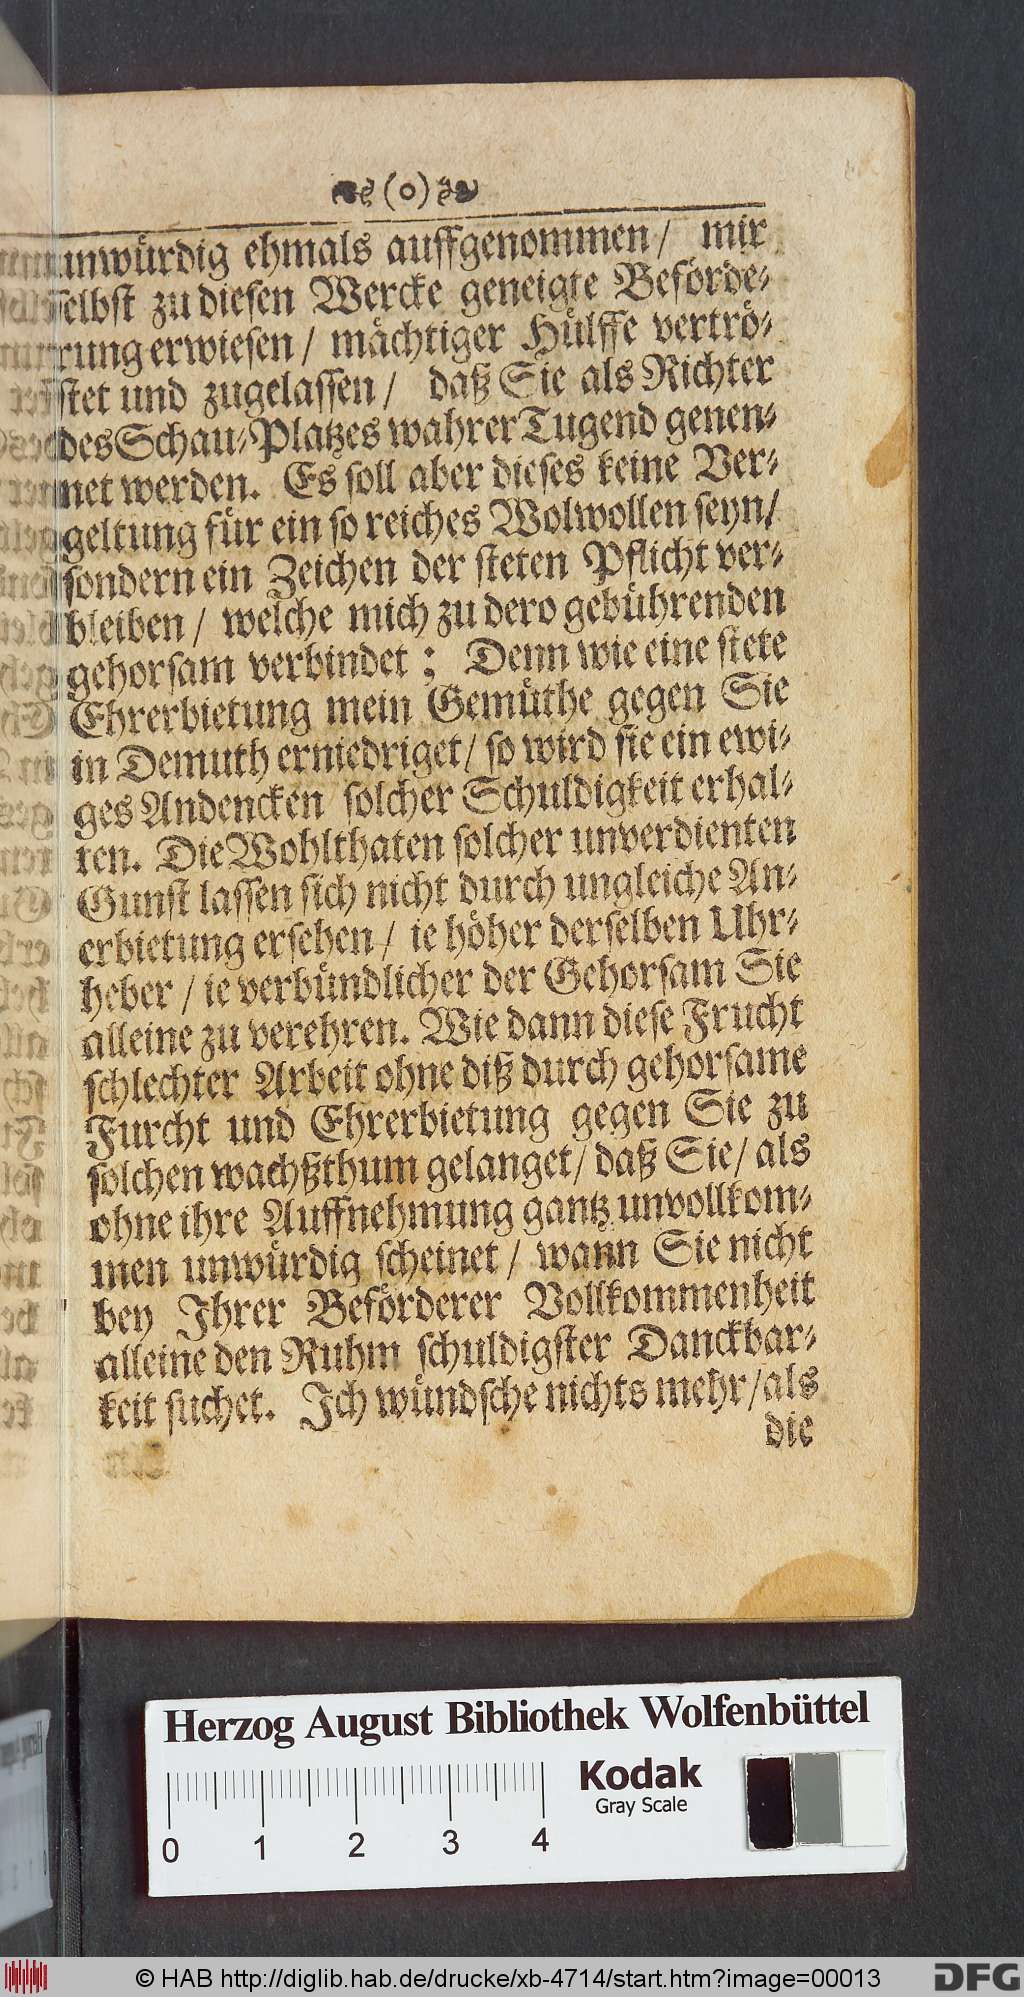 (o)
unwürdig ehmals auffgenommen/ mir
selbst zu diesen Wercke geneigte Beförde-
rung erwiesen/ mächtiger Hülffe vertrö-
stet und zugelassen/ daß Sie als Richter
des Schau-Platzes wahrer Tugend genen-
net werden. Es soll aber dieses keine Ver-
geltung für ein so reiches Wolwollen seyn/
sondern ein Zeichen der steten Pflicht ver-
bleiben/ welche mich zu dero gebührenden
gehorsam verbindet; Denn wie eine stete
Ehrerbietung mein Gemüthe gegen Sie
in Demuth erniedriget/ so wird sie ein ewi-
ges Andencken solcher Schuldigkeit erhal-
ten. Die Wohlthaten solcher unverdienten
Gunst lassen sich nicht durch ungleiche An-
erbietung ersehen/ ie höher derselben Uhr-
heber/ ie verbündlicher der Gehorsam Sie
alleine zu verehren. Wie dann diese Frucht
schlechter Arbeit ohne diß durch gehorsame
Furcht und Ehrerbietung gegen Sie zu
solchen wachßthum gelanget/ daß Sie/ als
ohne ihre Auffnehmung gantz unvollkom-
men unwürdig scheinet/ wann Sie nicht
bey Ihrer Beförderer Vollkommenheit
alleine den Ruhm schuldigster Danckbar-
keit suchet. Ich wündsche nichts mehr/als
die
Herzog August Bibliothek Wolfenbüttel
Kodak
Gray Scale
0 1 2 3 4
© HAB http://diglib.hab.de/drucke/xb-4714/start.htm?image=00013
DFG